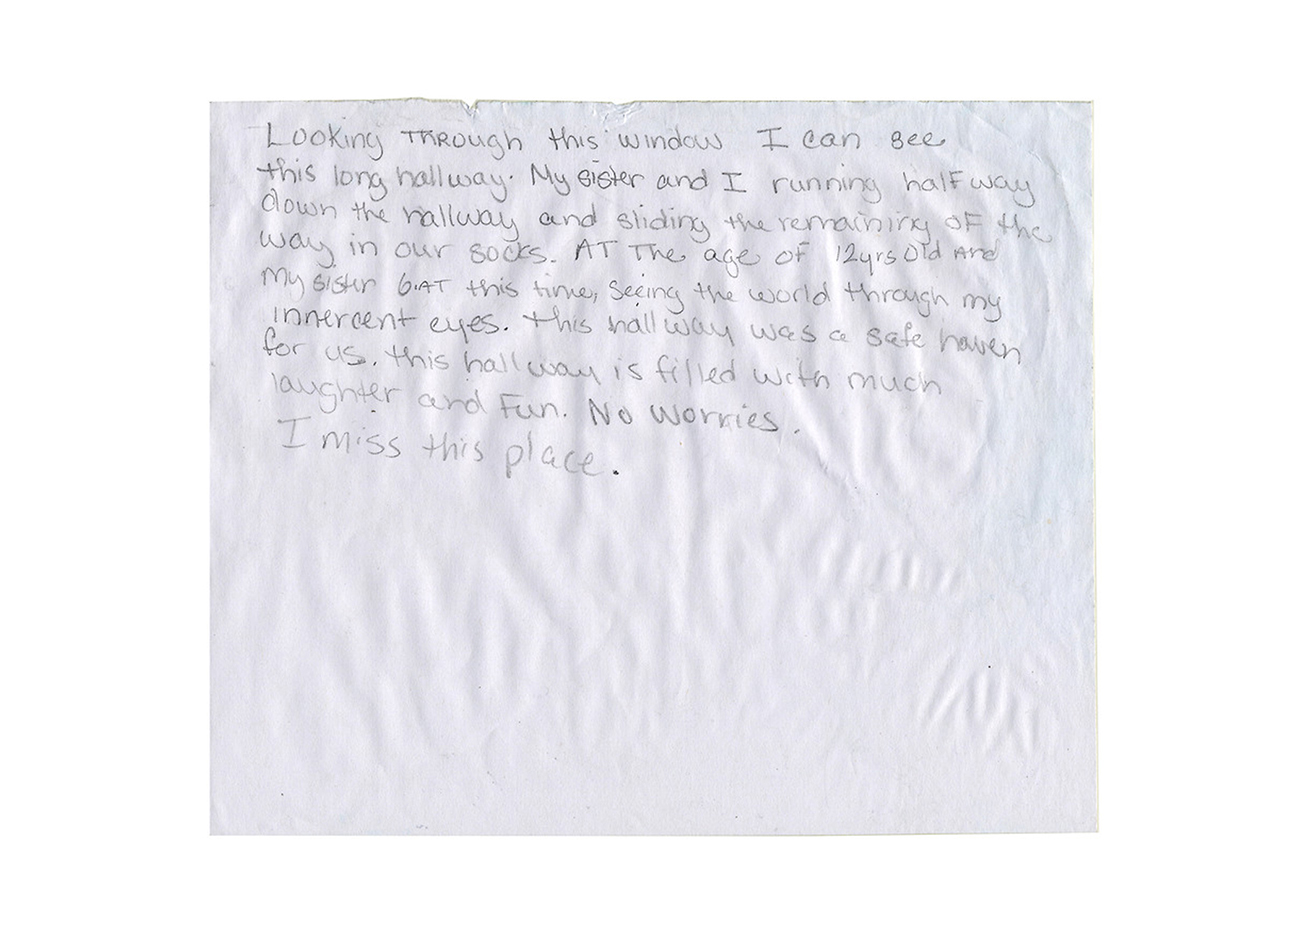 Looking THROUGH this window I can see
this long hallway. My sister and I running half way
down the hallway and sliding the remaining of the
way in our socks. AT The age of 12yrs Old And
my sister 6. AT this time, seeing the world through my
innercent eyes. this hallway was a safe haven
for us. this hallway is filled with much
laughter and Fun. No Worries.
I miss this place.